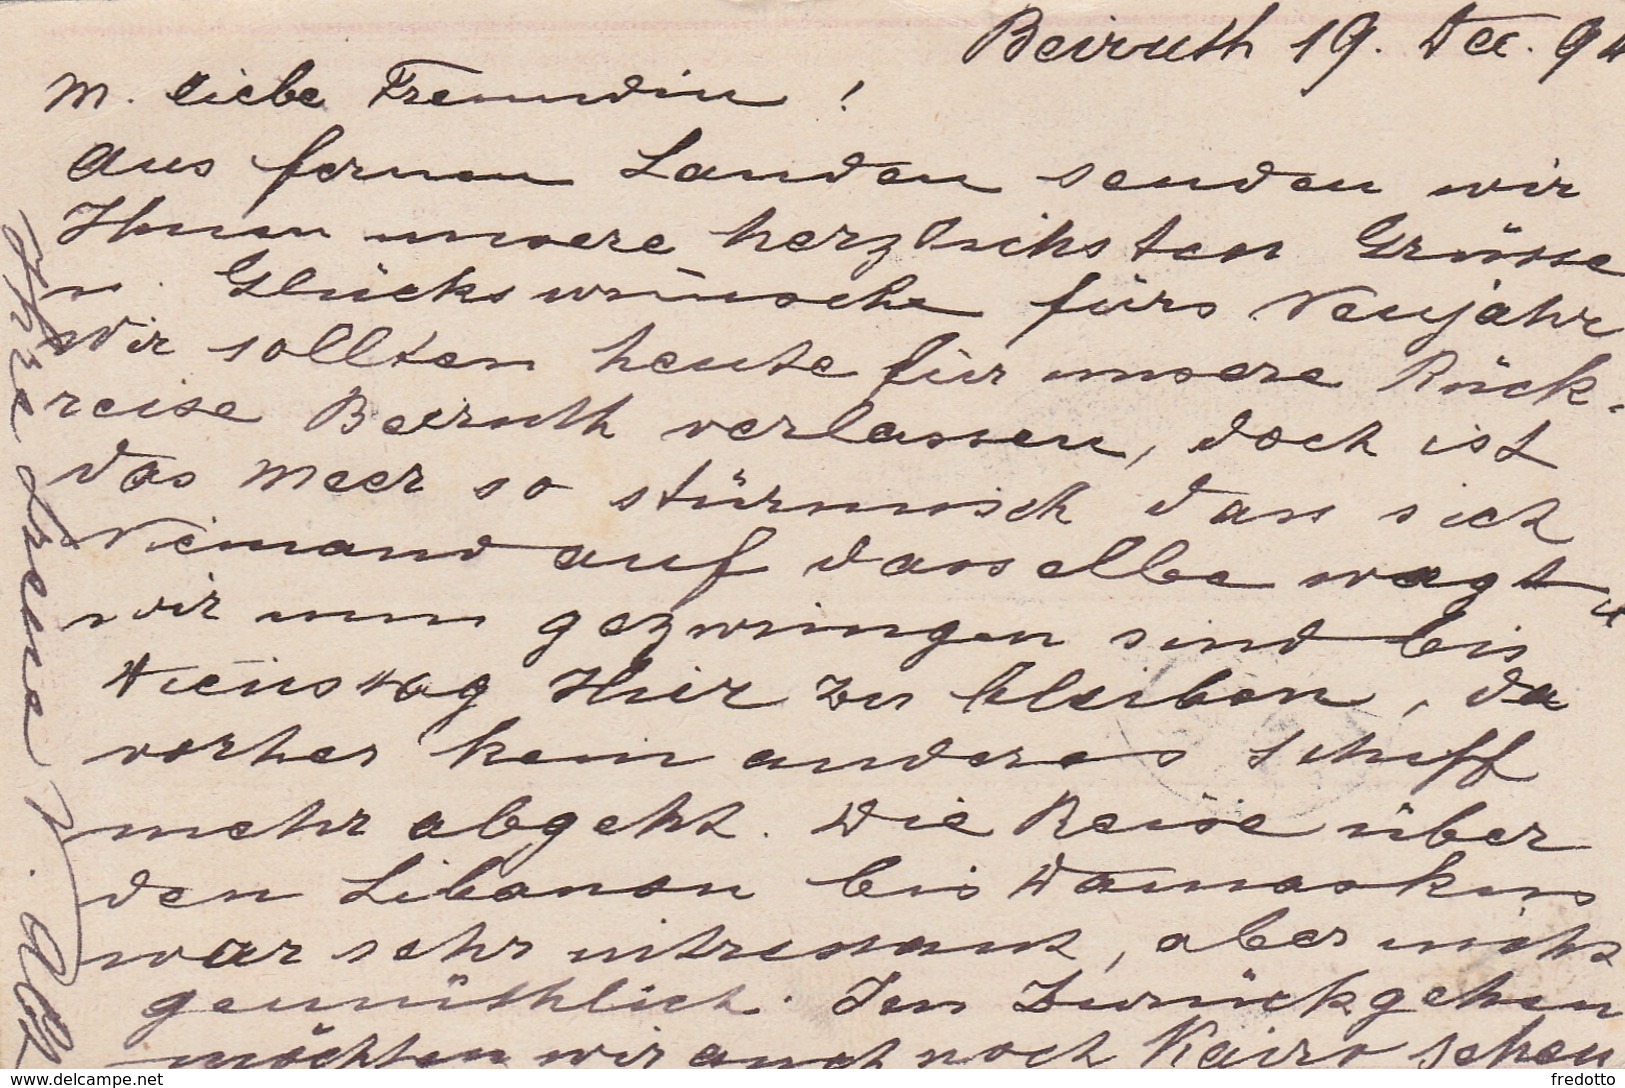 Beiruth 19. Dec. 94
M. liebe Freundin!
Aus fernen Landen senden wir
Ihnen unsere herzlichsten Grüsse
u. Glückswünsche fürs Neujahr
Wir sollten heute für unsere Rück-
reise Beiruth verlassen, doch ist
das Meer so stürmisch dass sich
Niemand auf dasselbe wagt u
wir nun gezwungen sind bis
Dienstag Hier zu bleiben, da
vorher kein anderes Schiff
mehr abgeht. Die Reise über
den Libanon bis Damaskus
war sehr intressant, aber nicht
gemüthlich. Im Zurückgehen
möchten wir auch noch Kairo sehen
Ihre
delcampe.net
fredotto